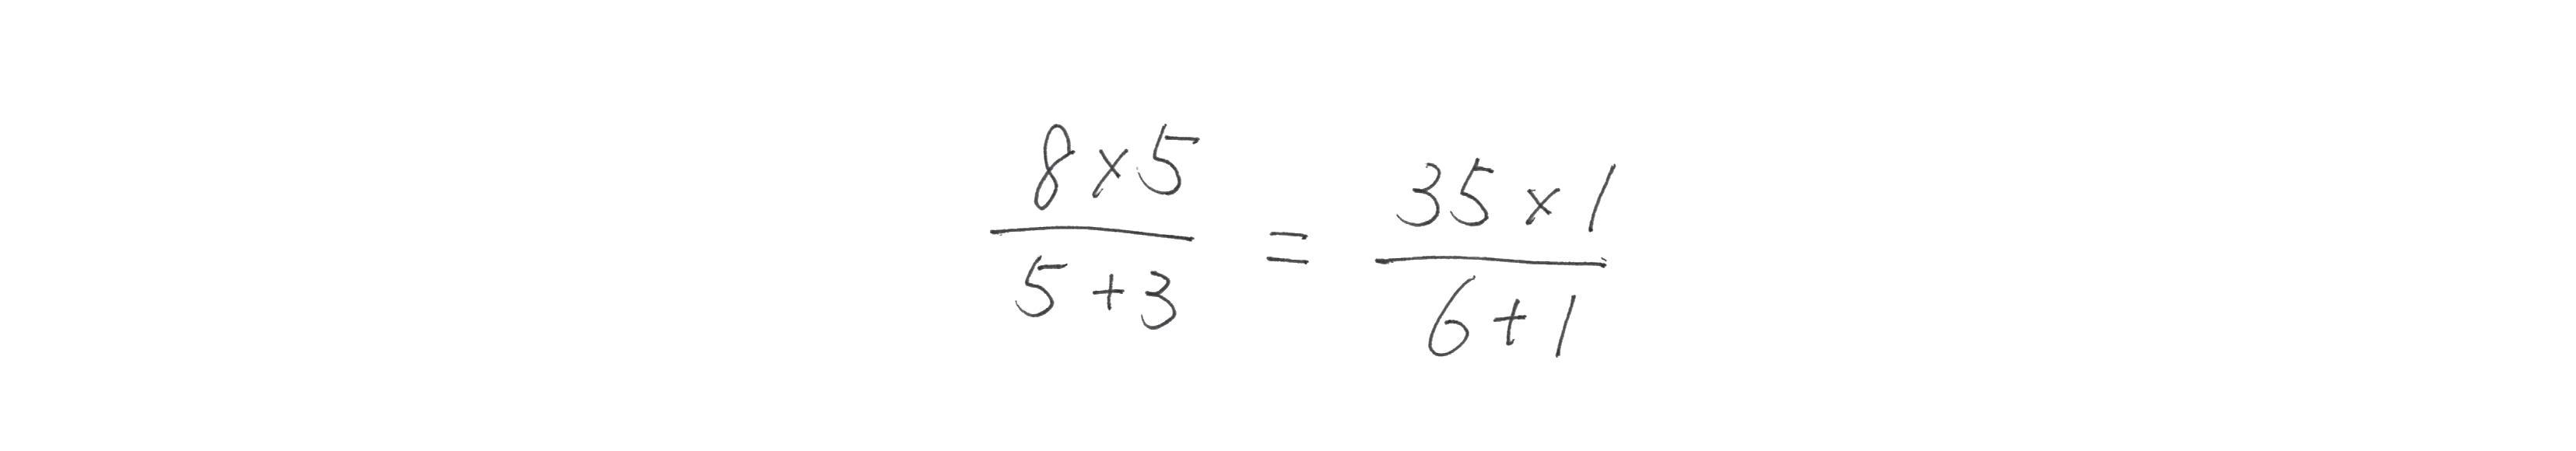 8×5/5+3 = 35×1/6+1